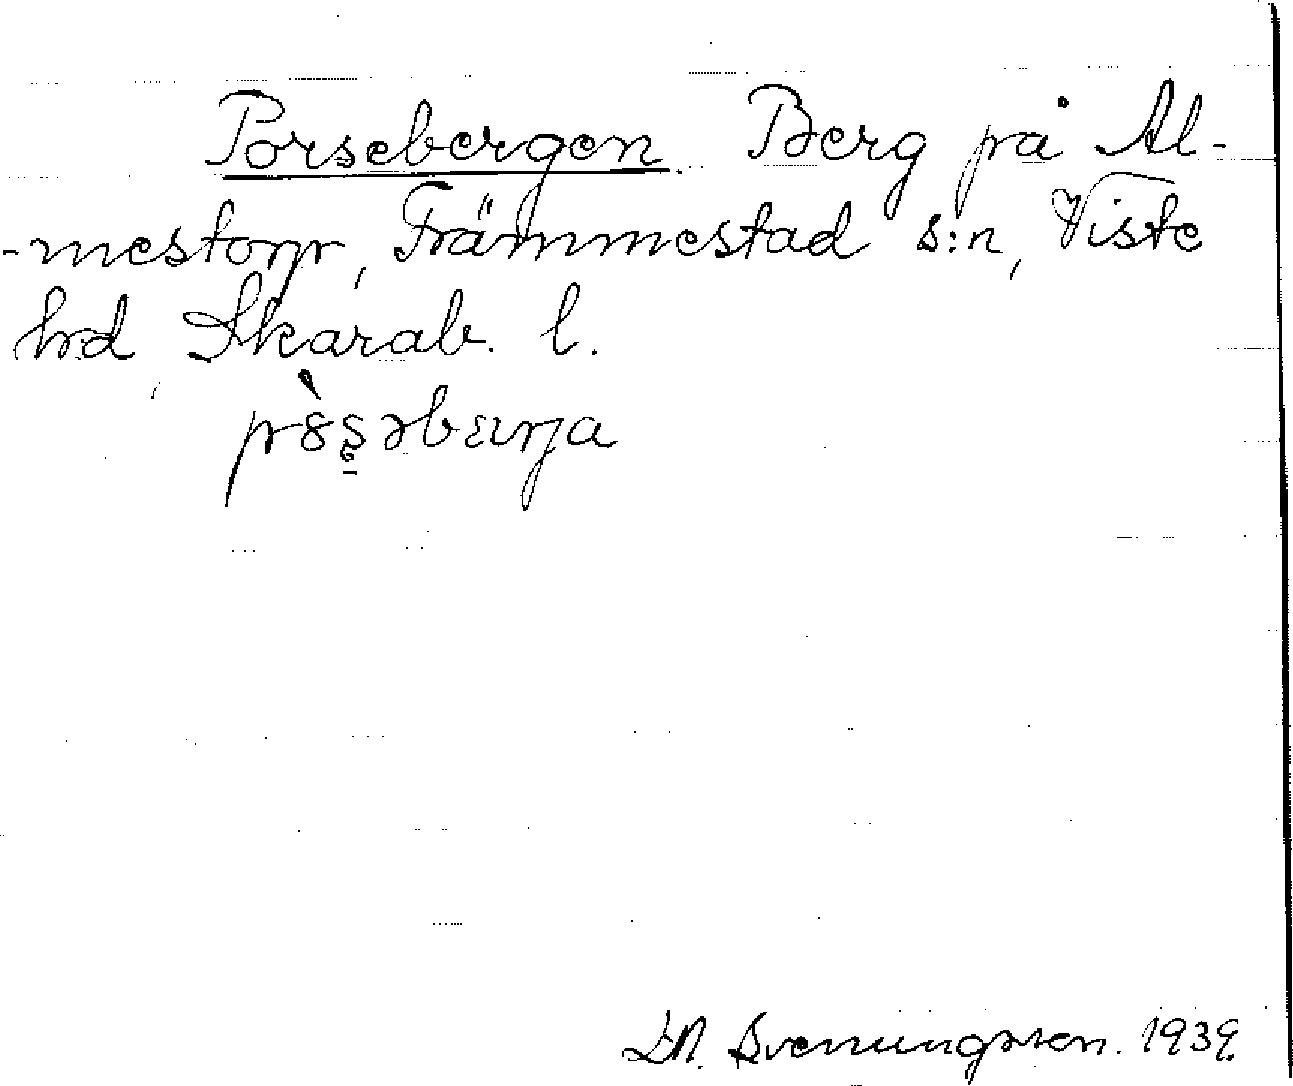 Porsebergen. Berg på Al-
-mestorp, Främmestad s:n, Viste
hrd, Skarab. l.
Svenungsson. 1939.